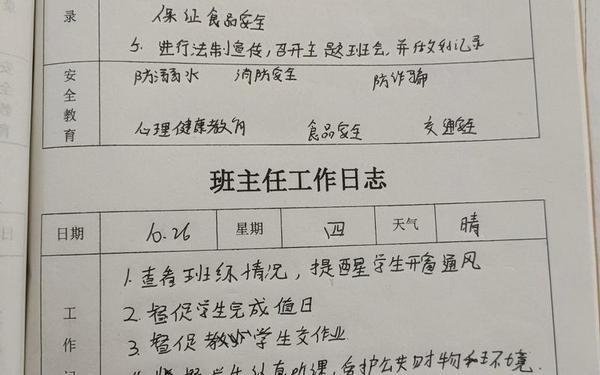 录
保证食品安全
5. 进行法制宣传,召开主题班会,并做好记录
安全教育
防溺水 消防安全 防诈骗
心理健康教育 食品安全 交通安全
班主任工作日志
日期 6.26 星期 四 天气 晴
工作记
1. 查看班级情况,提醒学生开窗通风
2. 督促学生完成值日
3. 督促学生交作业
学生 听课,爱护公共财物和环境.